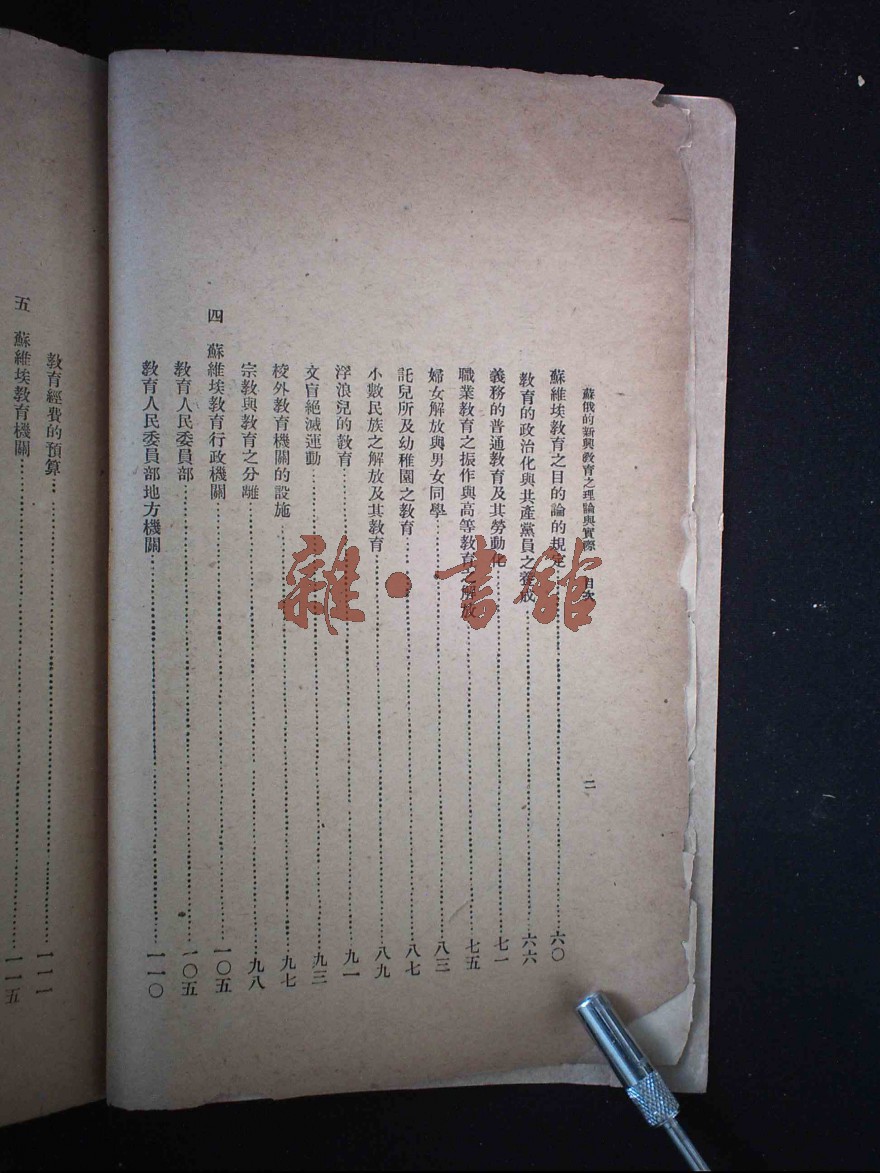 蘇俄的新興教育之理論與實際 目次 二
蘇維埃教育之目的論的規定……六〇
教育的政治化與共產黨員之養成……六六
義務的普通教育及其勞動化……七一
職業教育之振作與高等教育之解放……七五
婦女解放與男女同學……八三
託兒所及幼稚園之教育……八七
小數民族之解放及其教育……八九
浮浪兒的教育……九一
文盲絕滅運動……九三
校外教育機關的設施……九七
宗教與教育之分離……九八
四 蘇維埃教育行政機關……一〇五
教育人民委員部……一〇五
教育人民委員部地方機關……一一〇
教育經費的預算……一一一
五 蘇維埃教育機關……一一五
雜·書館